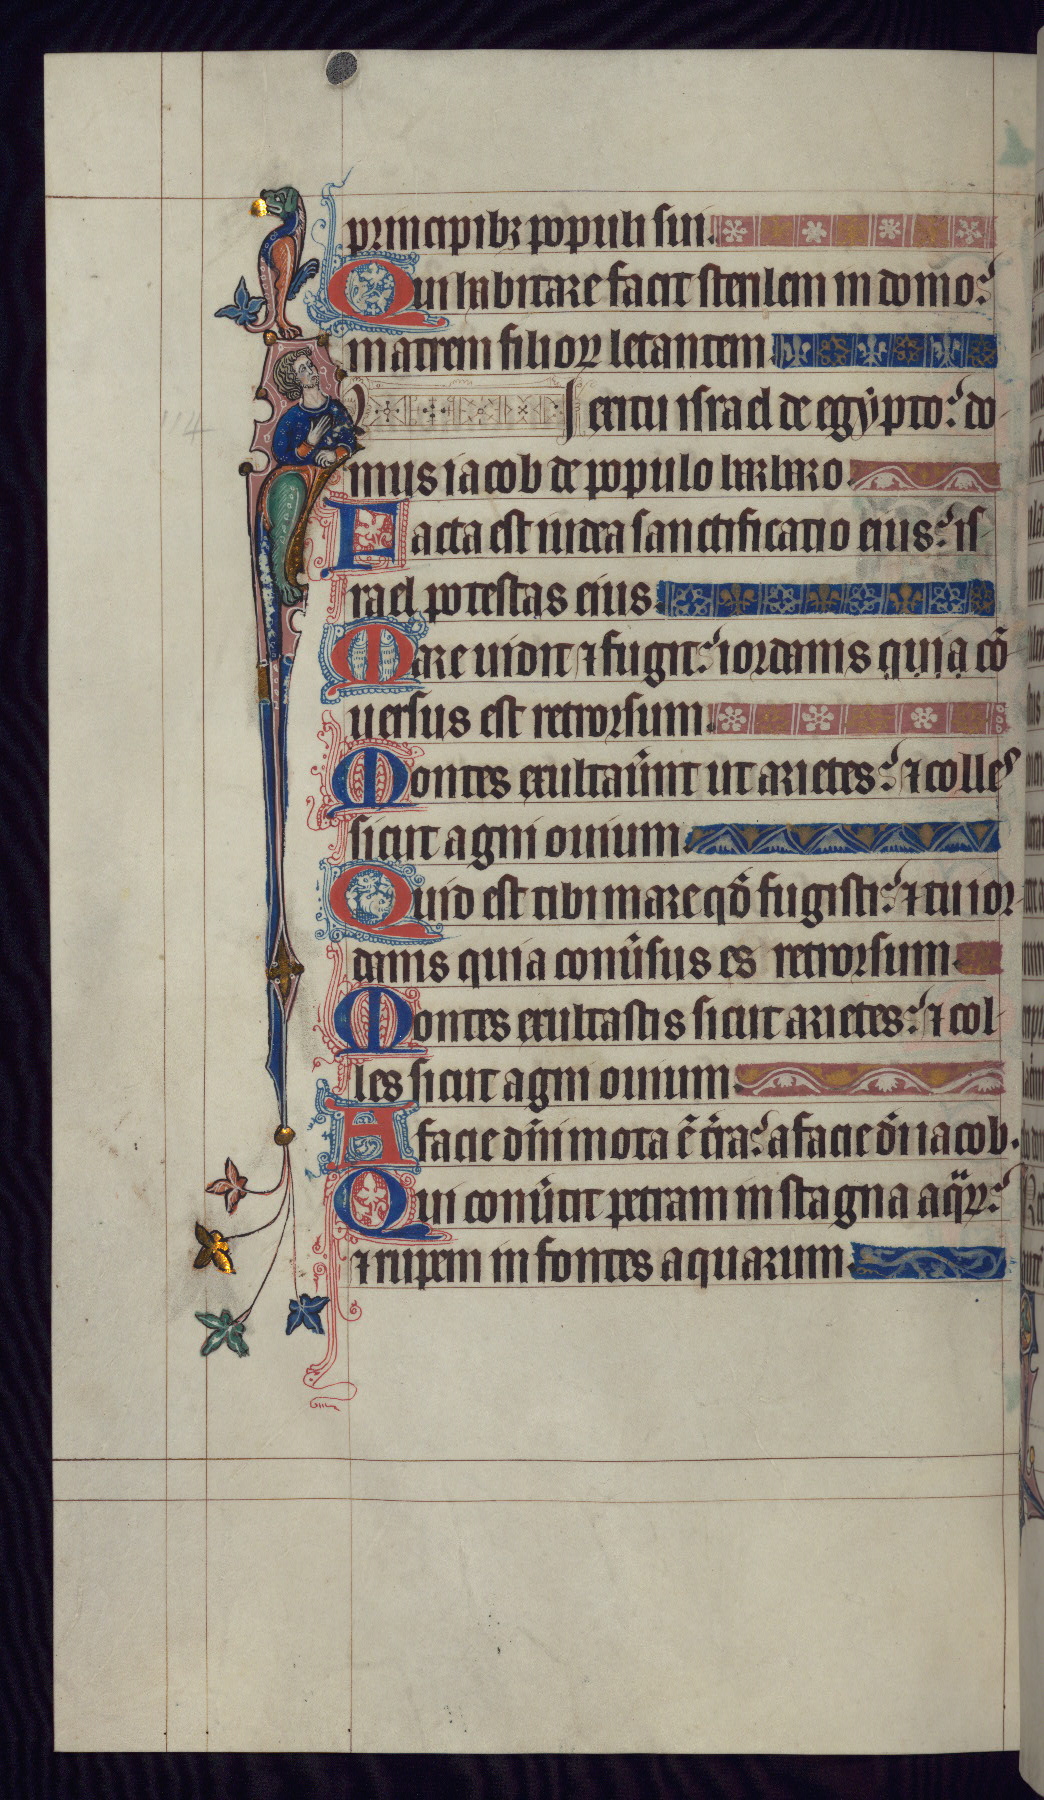 principibꝫ populi sui.
Qui habitare facit sterilem in domo:
matrem filioꝝ letantem.
I exitu israel de egẏpto: do
mus iacob de populo barbaro.
Facta est iudea sanctificatio eius: is
rael potestas eius.
Mare uidit ⁊ fugit: iordanis quia cō
uersus est retrorsum.
Montes exultaũnt ut arietes: ⁊ colles
sicut agni ouium.
Quid est tibi mare qđ fugisti: ⁊ tu ior
danis quia conũsus es retrorsum.
Montes exultastis sicut arietes: ⁊ col
les sicut agni ouium.
A facie dñi mota ē t̃ra: a facie d̃i iacob.
Qui conũtit petram in stagna aq̃ꝝ:
⁊ rupem in fontes aquarum.
114